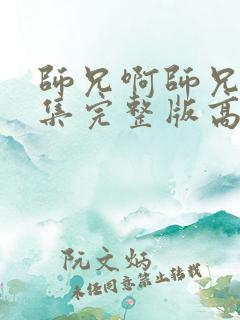 師兄啊師兄
集完整版高
阮文炳
未经同意禁止转载